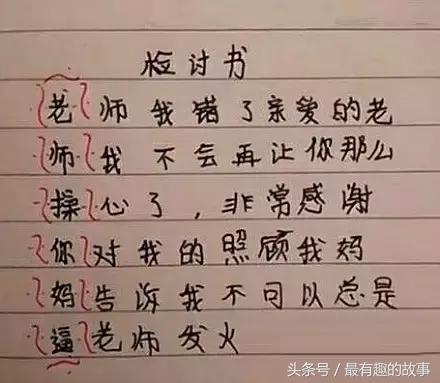 检讨书
老师我错了亲爱的老
师我不会再让你那么
操心了，非常感谢
你对我的照顾我妈
妈告诉我不可以总是
逼老师发火
头条号 / 最有趣的故事